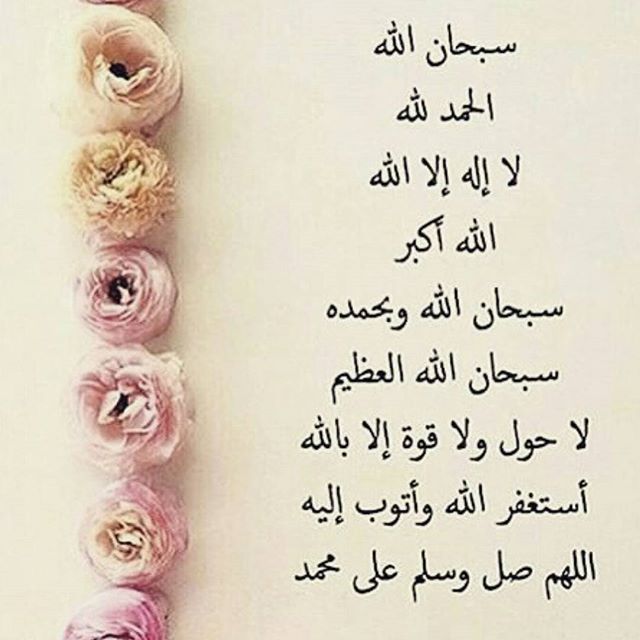 سبحان الله
الحمد لله
لا إله إلا الله
الله أكبر
سبحان الله وبحمده
سبحان الله العظيم
لا حول ولا قوة إلا بالله
أستغفر الله وأتوب إليه
اللهم صل وسلم على محمد